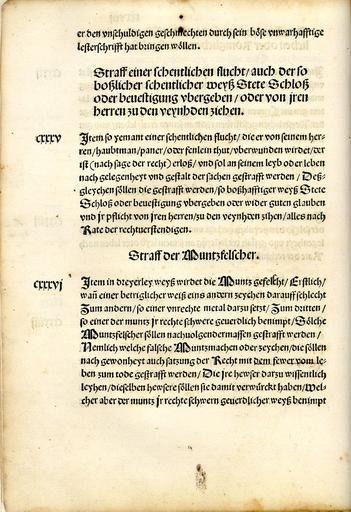 er den vnschuldigen geschmechten durch sein böse vnwarhafftige
lesterschrifft hat bringen wöllen.
Straff einer schentlichen flucht/ auch der so
boßlicher schentlicher weyß Stete Schloß
oder beuestigung vbergeben/ oder von jren
herren zu den veynhden ziehen.
cxxxv
Item so yemant einer schentlichen flucht/ die er von seinem her-
ren/ haubtman/ paner/ oder fenlein thut/ vberwunden wirdet/ der
ist (nach sage der recht) erloß/ vnd sol an seinem leyb oder leben
nach gelegenheyt vnd gestalt der sachen gestrafft werden/ Deß-
gleychen söllen die gestrafft werden/ so boßhafftiger weyß Stete
Schloß oder beuestigung vbergeben oder wider guten glauben
vnd jr pflicht von jren herren/ zu den veynhden zihen/ alles nach
Rate der rechtuerstendigen.
Straff der Muntzfelscher.
cxxxvj
Item in dreyerley weyß wirdet die Muntz gefelscht/ Erstlich/
wañ einer betriglicher weiß eins andern zeychen darauff schlecht
Zum andern/ so einer vnrechte metal darzu setzt/ Zum dritten/
so einer der muntz jr rechte schwere geuerdlich benimpt/ Sölche
Muntzfelscher söllen nachuolgender massen gestrafft werden/
Nemlich welche falsche Muntz machen oder zeychen/ die söllen
nach gewonheyt auch satzung der Recht mit dem fewer vom le-
ben zum tode gestrafft werden/ Die jre hewser darzu wissentlich
leyhen/ dieselben hewsere söllen sie damit verwürckt haben/ Wel-
cher aber der muntz jr rechte schwern geuerdlicher weyß benimpt